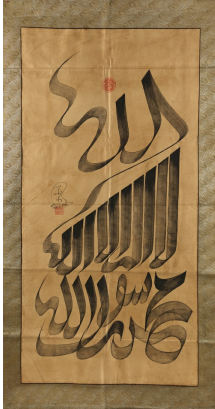 الله
لا اله الا الله
محمد رسول الله